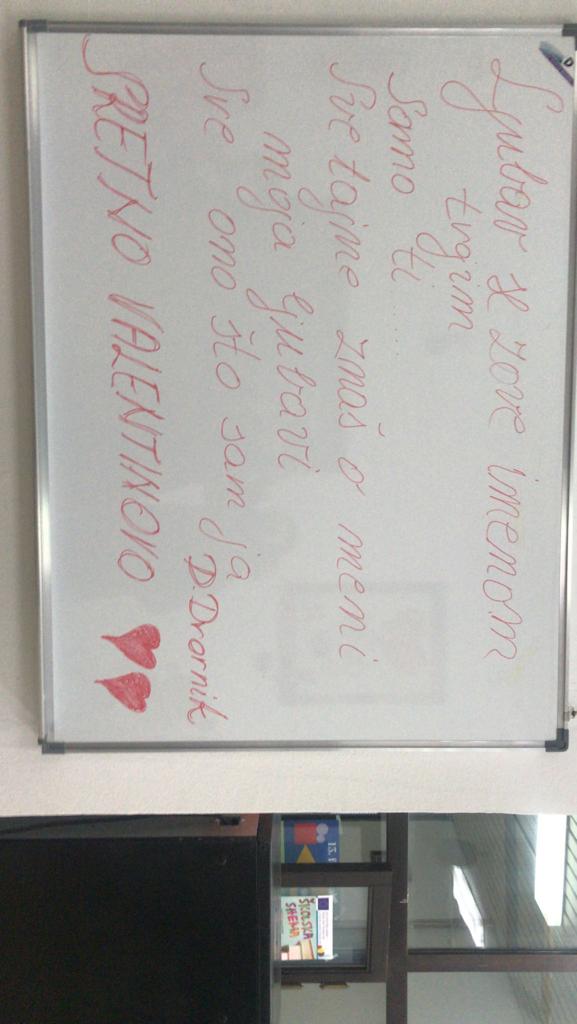 Ljubav se zove imenom
tvojim
Samo ti....
Sve tajne znaš o meni
moja ljubavi
Sve ono što sam ja
D. Dvornik
SRETNO VALENTINOVO
ŠKOLSKA
SHEMA